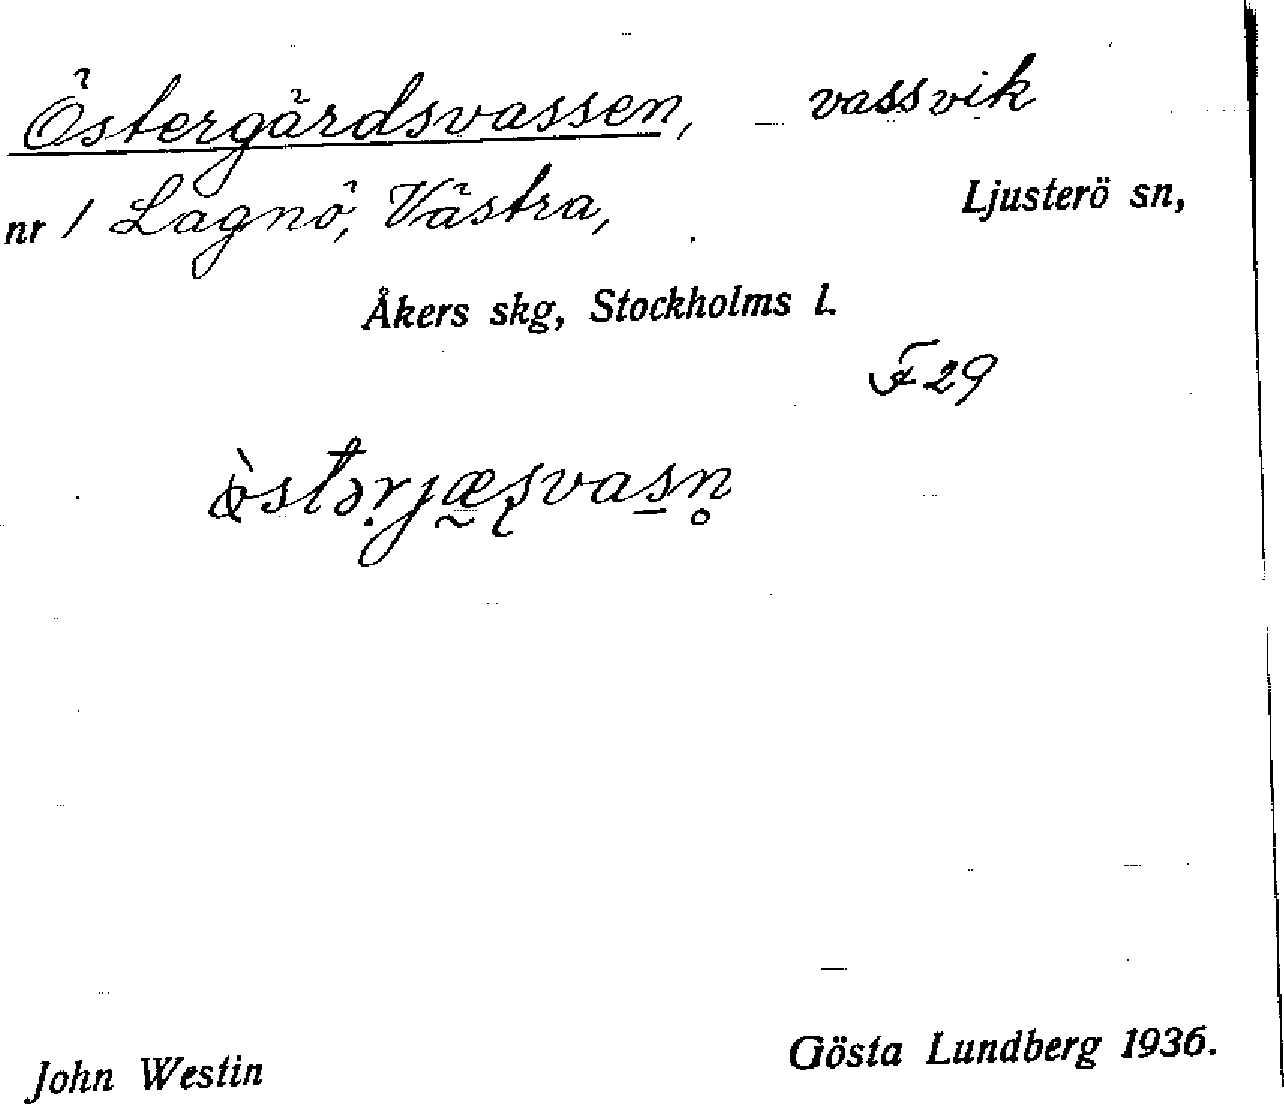 Östergärdsvassen, vassvik
nr 1 Lagnö, Västra, Ljusterö sn,
Åkers skg, Stockholms l.
F 29
John Westin Gösta Lundberg 1936.